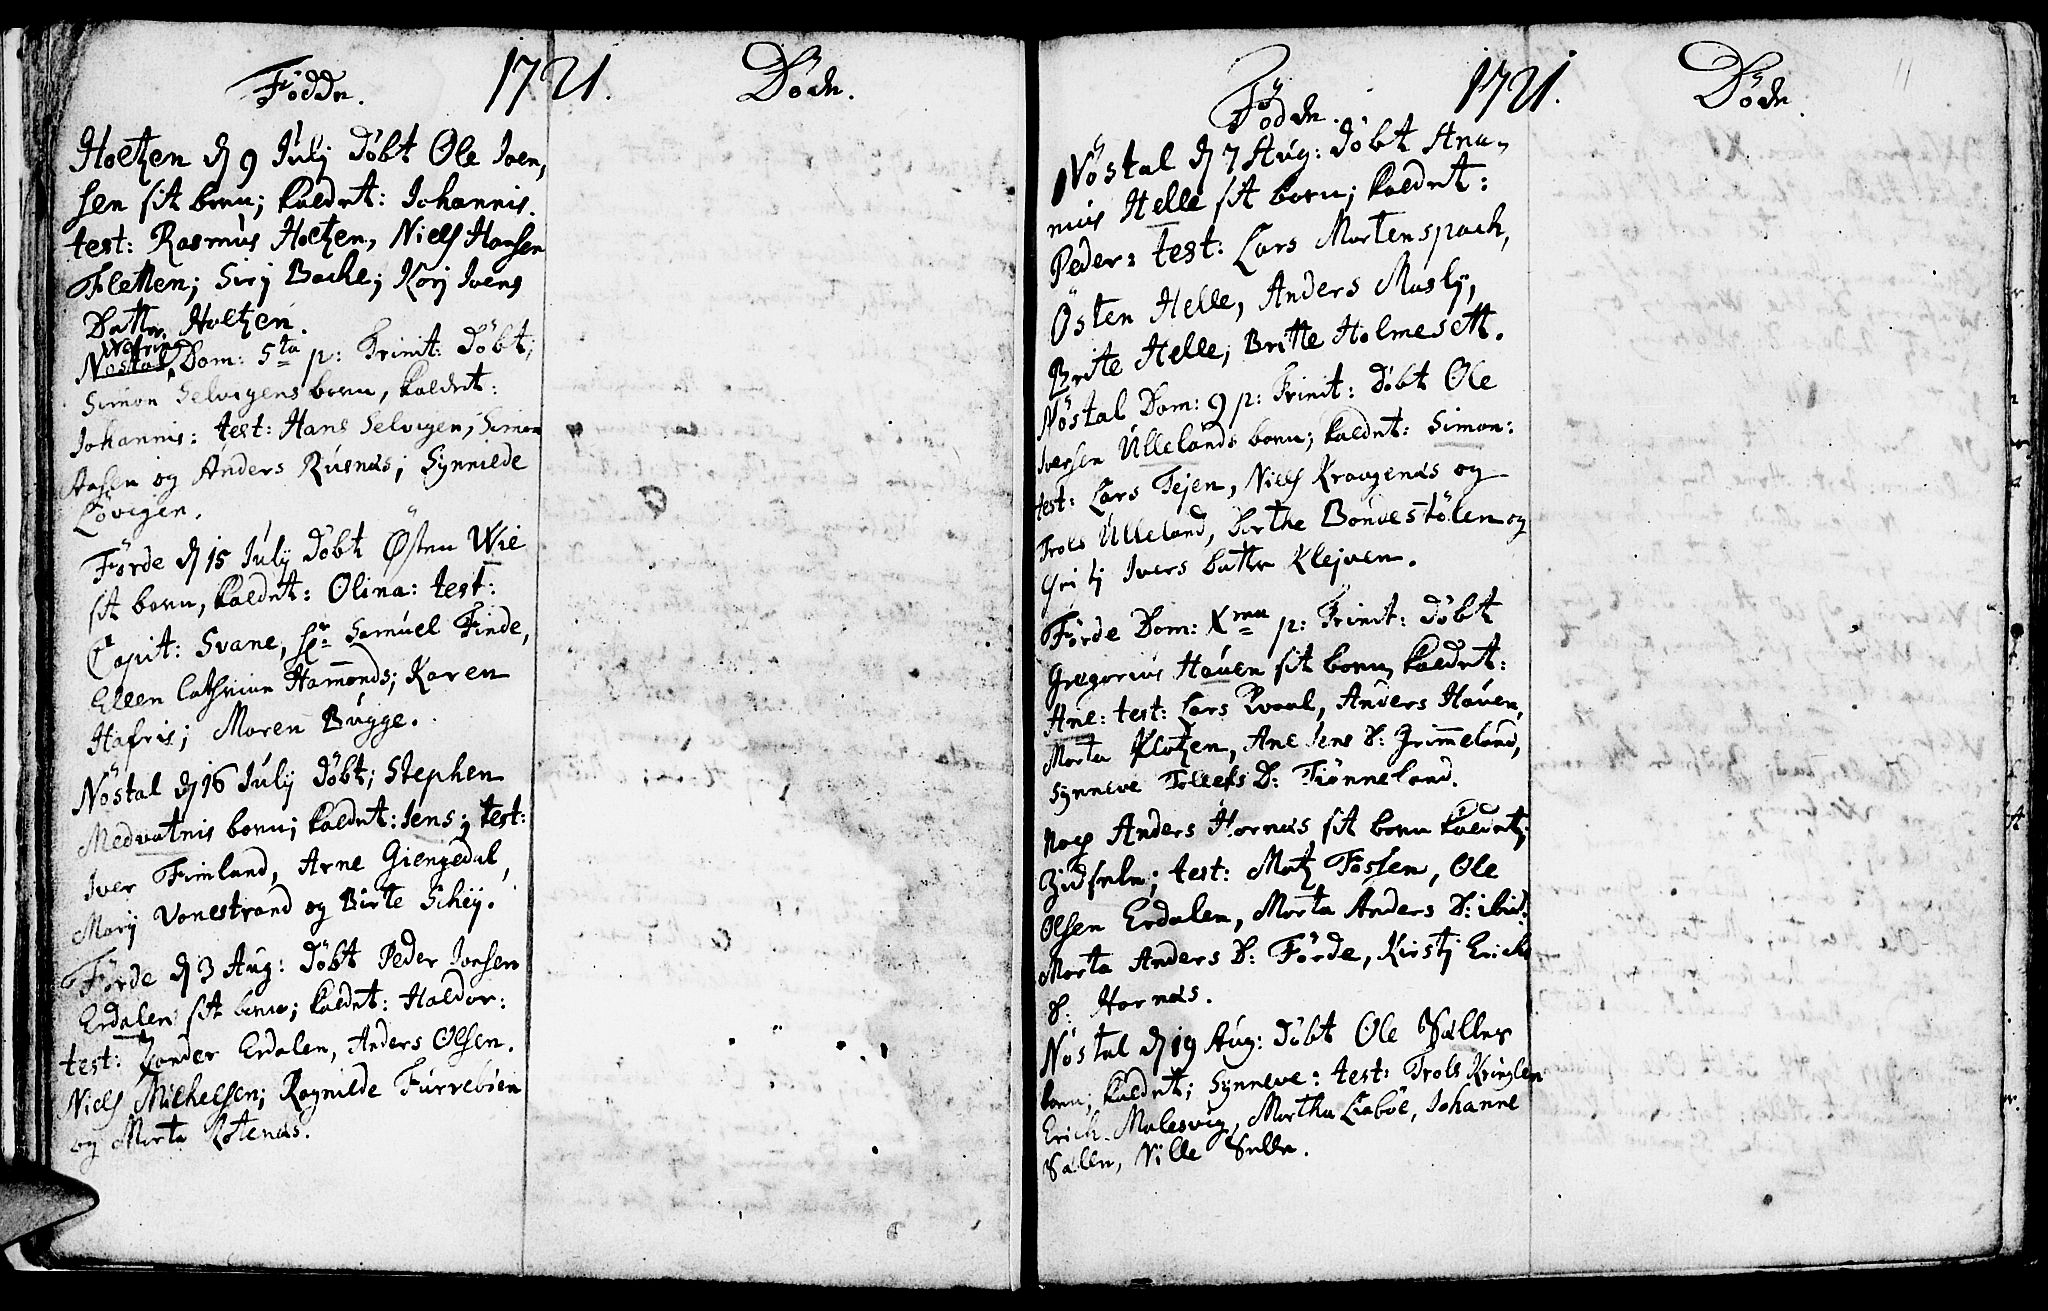 Födde. 1721. Döde.
Hoetzen d 9 Julj döbt Ole Iven,
sen sit barn; kaldet: Johannis.
test: Rasmus Hoetzen, Niels Hansen
Fletten; Sirj Bache; Karj Ivens
Datter Hoetzen.
Nafring
Nöstal, Dom: 5ta p: Trinit: Döbt;
Simon Selvigens barn, kaldet:
Johannis: test: Hans Selvigen, Simon
Aasen og Anders Rusnæs; Synnilde
Lövigen.
Förde d 15 Julij döbt Østen Wie
sit barn, kaldet: Olina: test:
Capit: Svane, Sr Samuel Finde,
Ellen Cathrine Hamonds; Karen
Hafris; Maren Bugge.
Nöstal d 16 Julij döbt; Stephen
Medvatnis barn; kaldet: Jens; test:
Iver Fimland, Arne Giengedal,
Marij Vonestrand og Birte Schej.
Förde d 3 Aug: döbt Peder Jonsen
Erdalen sit barn; kaldet: Haldor:
test: Zander Erdalen, Anders Olsen.
Niels Michelsen; Ragnilde Furreböen
og Marta Lotenæs.
Födde. 1721. Döde. 11
Nöstal d 7 Aug: döbt Ana-
nius Helle sit barn; kaldet:
Peder: test: Lars Martenspach,
Östen Helle, Anders Muslj,
Brite Helle; Britte Holmesett.
Nöstal Dom: 9 p: Trinit: döbt Ole
Iversen Ullelands barn; kaldet: Simon:
test: Lars Tejen, Niels Kraagenæs og
Trols Ulleland, Dorthe Bondestölen og
Gritj Ivers datter Klejven.
Förde Dom: Xma p: Trinit: döbt
Gregorius Hauen sit barn kaldet:
Ane: test: Lars Kvaal, Anders Hauen,
Marta Klotzen, Ane Jens D: Grimeland,
Synneve Folleks D: Tiönneland.
Noes Anders Hornæs sit barn kaldet;
Zidsele; test: Matz Fossen, Ole
Olsen Erdalen, Marta Anders D: ibid:
Marta Anders D: Förde, Kirstj Erichs
D: Hornæs.
Nöstal d 19 Aug: döbt Ole Sælles
barn; kaldet; Synneve: test: Trols Kringlen
Erich Malesvig, Martha Liaböe, Johanne
Sælle, Nille Selle.